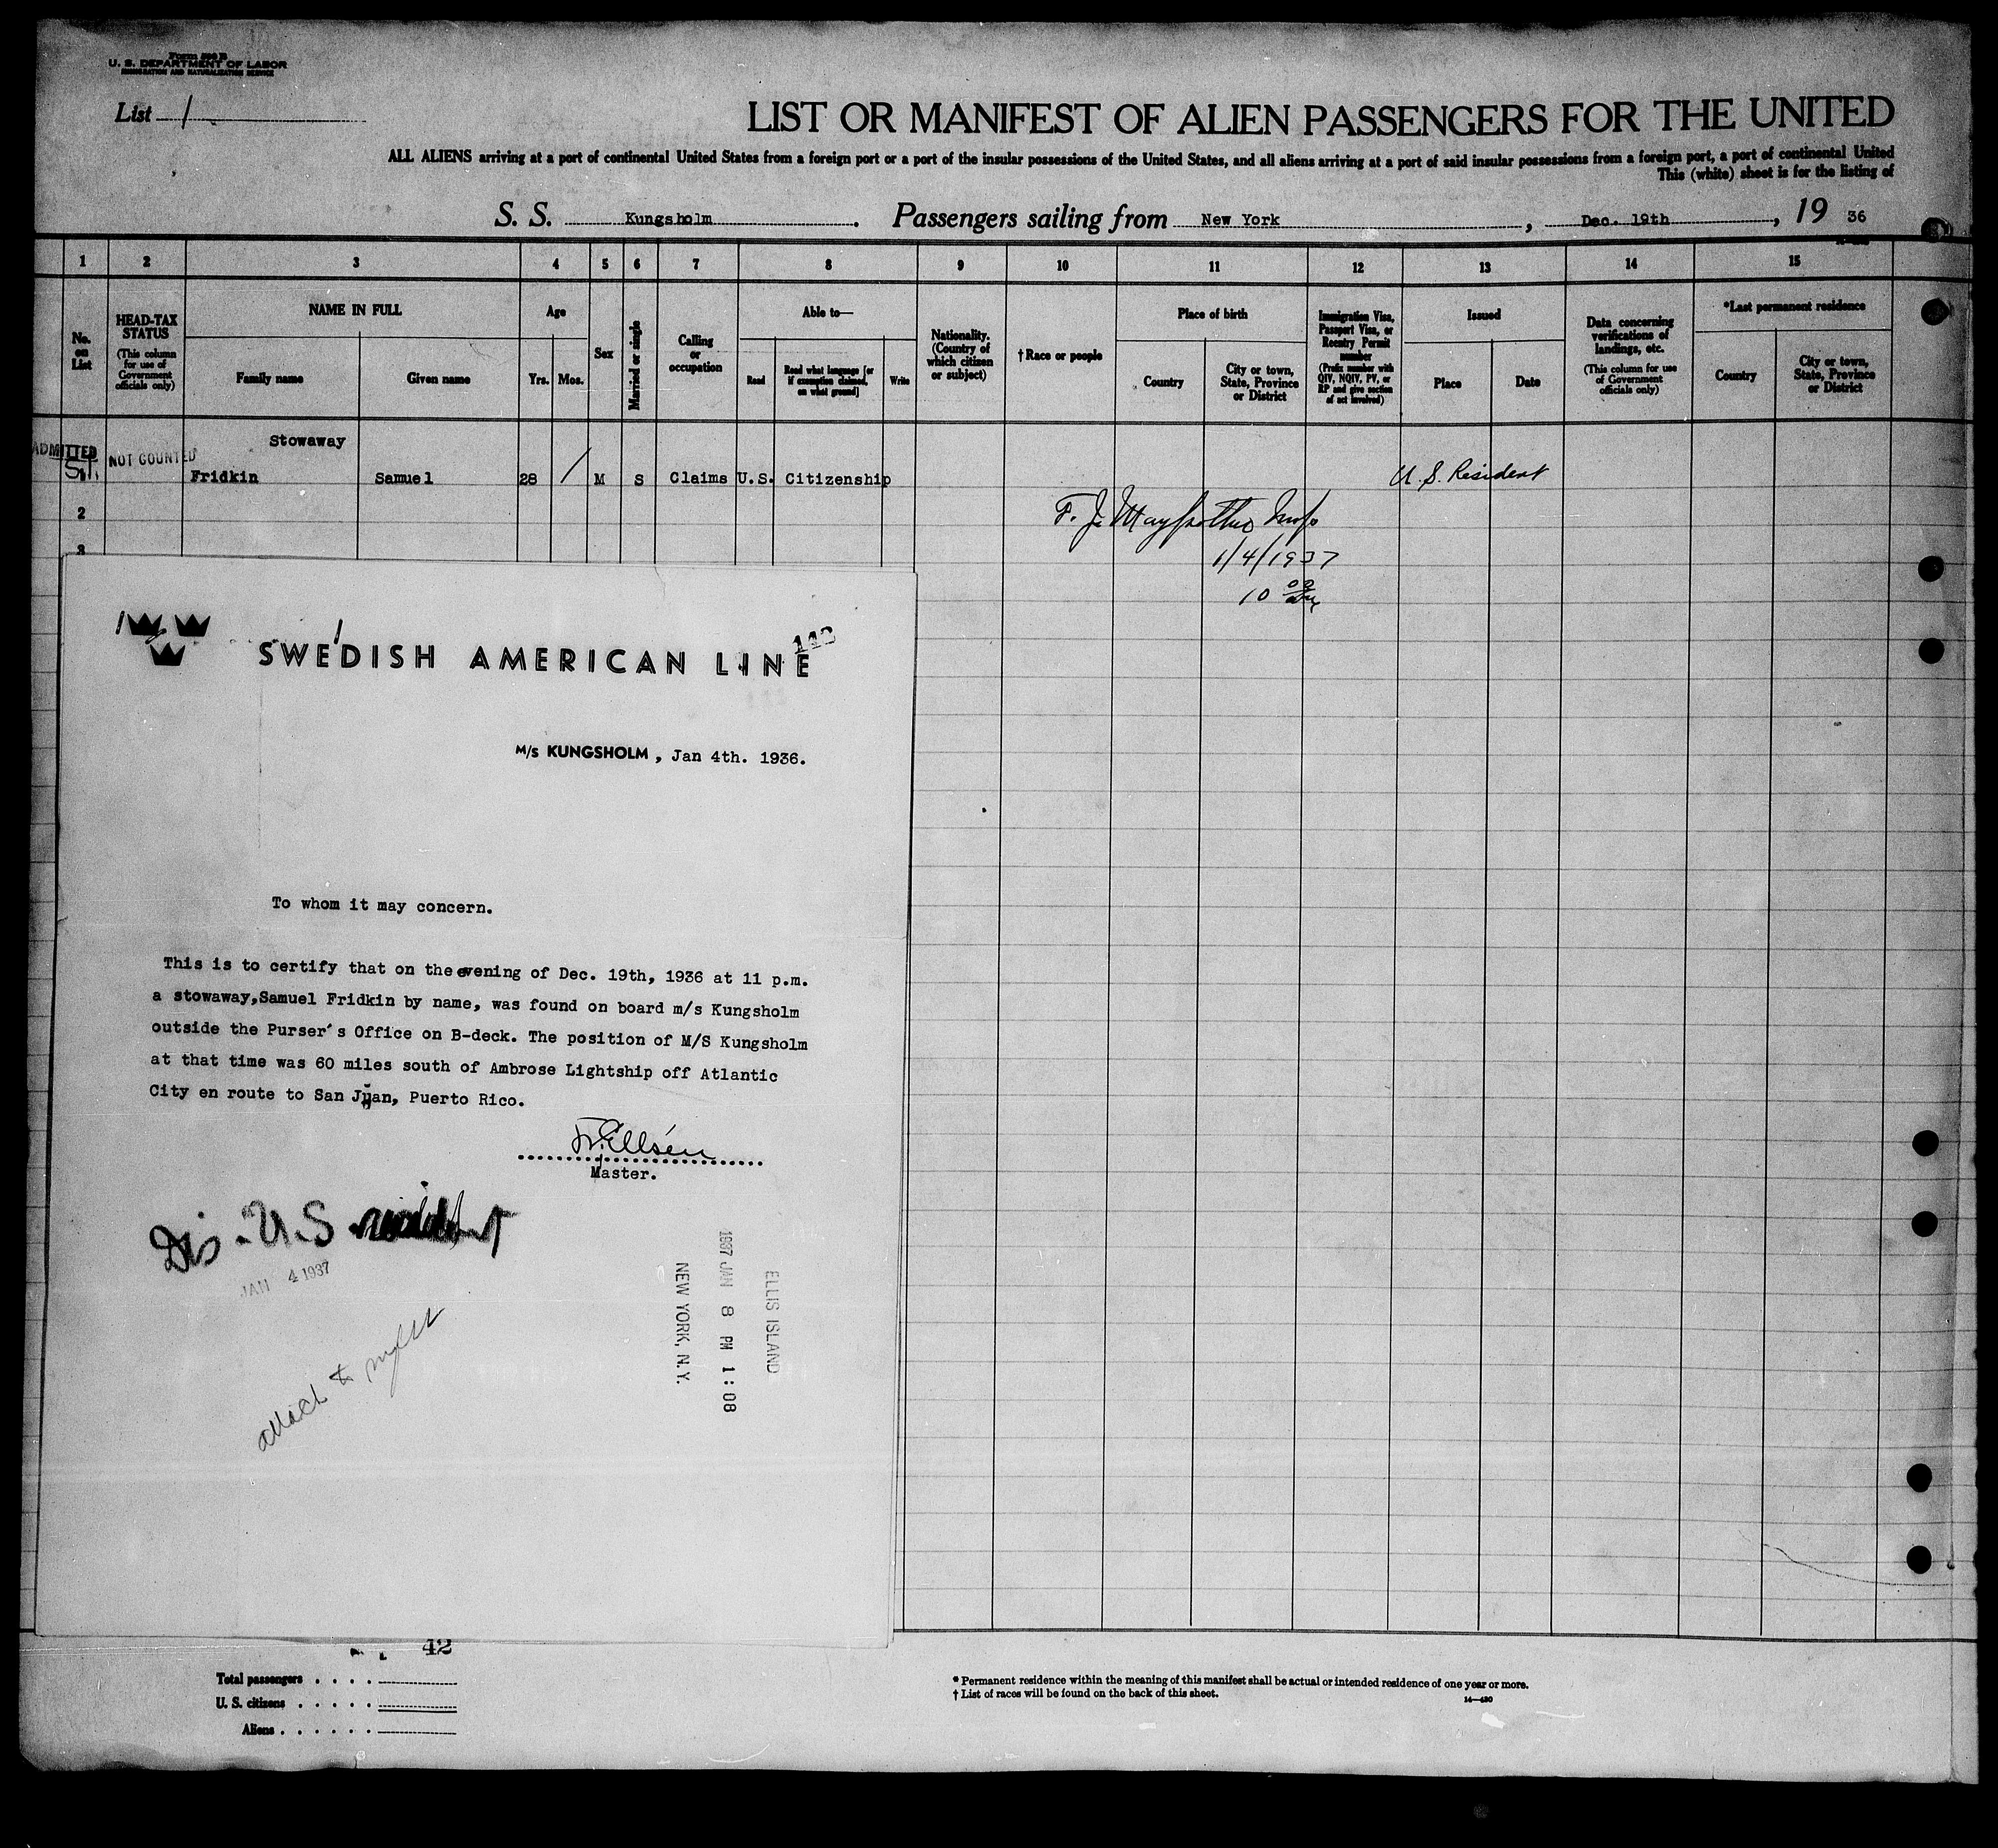 Form 500 B
U. S. DEPARTMENT OF LABOR
IMMIGRATION AND NATURALIZATION SERVICE
List 1
LIST OR MANIFEST OF ALIEN PASSENGERS FOR THE UNITED
ALL ALIENS arriving at a port of continental United States from a foreign port or a port of the insular possessions of the United States, and all aliens arriving at a port of said insular possessions from a foreign port, a port of continental United
This (white) sheet is for the listing of
S. S. Kungsholm. Passengers sailing from New York, Dec. 19th, 19 36
1 2 3 4 5 6 7 8 9 10 11 12 13 14 15
No. on List
HEAD-TAX STATUS
(This column for use of Government officials only)
NAME IN FULL
Family name
Given name
Age
Yrs. Mos.
Sex
Married or single
Calling or occupation
Able to—
Read
Read what language [or if exemption claimed, on what ground]
Write
Nationality. (Country of which citizen or subject)
† Race or people
Place of birth
Country
City or town, State, Province or District
Immigration Visa, Passport Visa, or Reentry Permit number
(Prefix number with QIV, NQIV, PV, or RP and give section of act involved)
Issued
Place
Date
Data concerning verifications of landings, etc.
(This column for use of Government officials only)
*Last permanent residence
Country
City or town, State, Province or District
Stowaway
ADMITTED
NOT COUNTED
Fridkin Samuel 28 / M S Claims U.S. Citizenship
U.S. Resident
2
3
1/4/1937
10 00
SWEDISH AMERICAN LINE
M/s KUNGSHOLM, Jan 4th. 1936.
To whom it may concern.
This is to certify that on the evening of Dec. 19th, 1936 at 11 p.m.
a stowaway,Samuel Fridkin by name, was found on board m/s Kungsholm
outside the Purser's Office on B-deck. The position of M/S Kungsholm
at that time was 60 miles south of Ambrose Lightship off Atlantic
City en route to San Juan, Puerto Rico.
Master.
Dis. U.S
JAN 4 1937
attach to
ELLIS ISLAND
1937 JAN 8 PM 1:08
NEW YORK, N.Y.
42
Total passengers
U. S. citizens
Aliens
* Permanent residence within the meaning of this manifest shall be actual or intended residence of one year or more.
† List of races will be found on the back of this sheet.
14—430